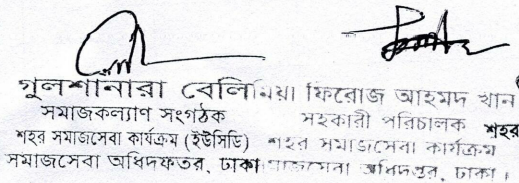 গুলশানারা বেলি
সমাজকল্যাণ সংগঠক
শহর সমাজসেবা কার্যক্রম (ইউসিডি)
সমাজসেবা অধিদফতর, ঢাকা
মিয়া ফিরোজ আহমদ খান
সহকারী পরিচালক
শহর সমাজসেবা কার্যক্রম
সমাজসেবা অধিদপ্তর, ঢাকা।
শহর